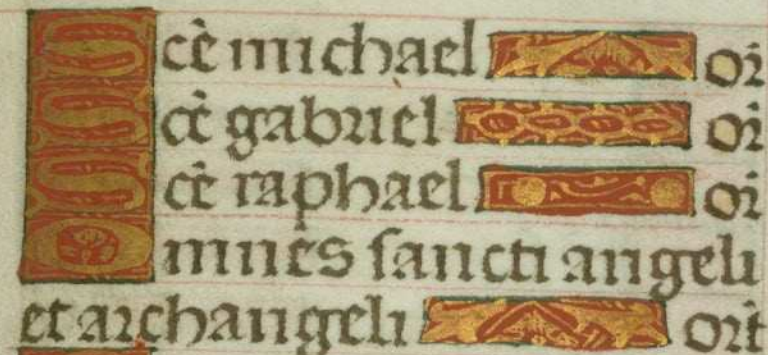 Scē michael or̄
Scē gabriel or̄
Scē raphael or̄
Omnes sancti angeli
et archangeli ort̄